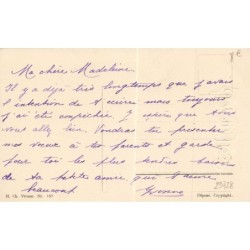 Ma chère Madeleine
Il y a déjà très longtemps que j'avais
l'intention de t'écrire mais toujours
j'ai été empêchée. J'espère que tous
vous allez bien. Voudras tu présenter
mes vœux à tes parents et garde
pour toi les plus tendres baisers
de ta petite amie qui t'aime
beaucoup
Yvonne
8€